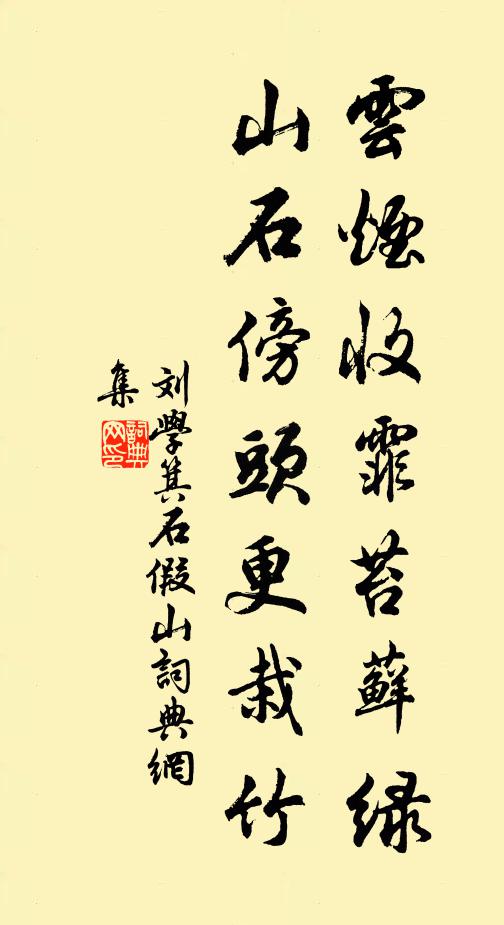 雲煙收霏苔蘚緑
山石傍頭更栽竹
刘學箕石假山詞典網
集
詞典
网印